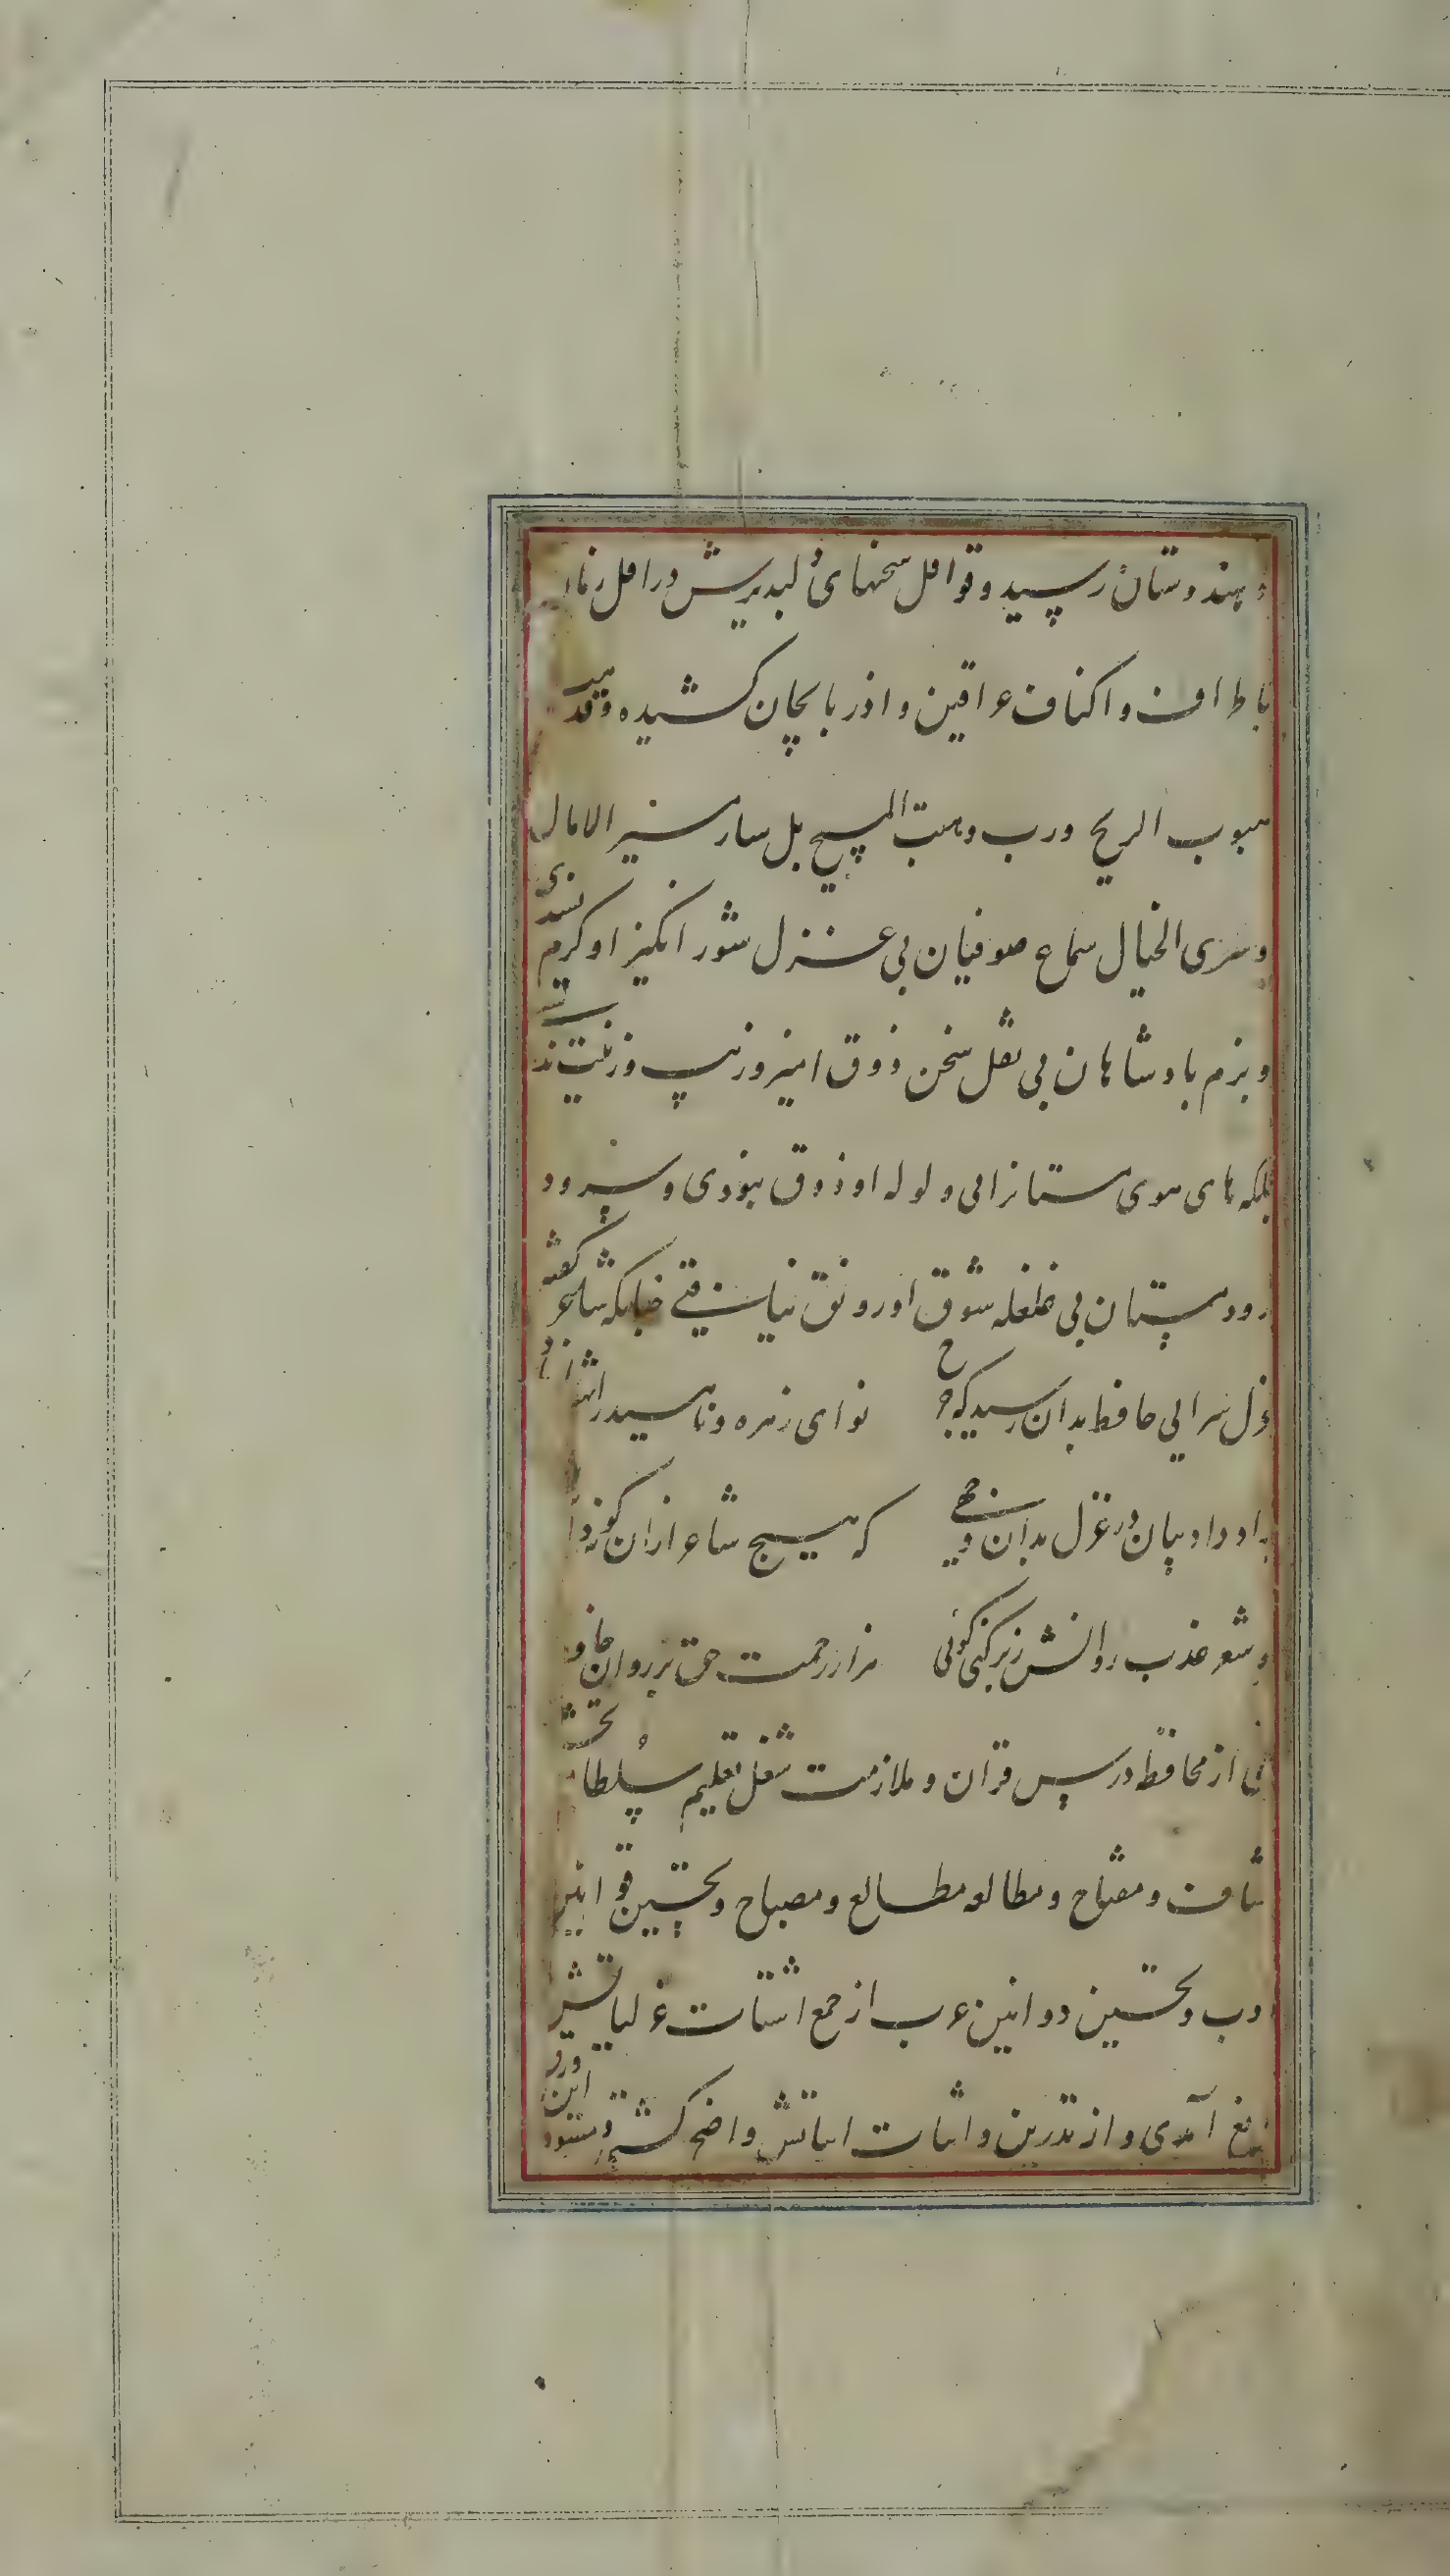 و هندوستان رسید و قوافل سخنهای دلپذیرش در اقل زمان
باطراف و اکناف عراقین و اذربایجان کشیده وقد هب
هبوب الریح ودب دبیب المسیح بل سار مسیر الامثال
وسری الخیال سماع صوفیان بی غزل شور انگیز او گرم نشدی
و بزم پادشاهان بی نقل سخن ذوق امیز او زیب و زینت نداشتی
بلکه های هوی مستان بی ولوله او ذوق نبودی و سرود
رود مستان بی غلغله شوق او رونق نیافتی چنانکه شاعر گفته
غزل سرایی حافظ بدان رسید که چرخ نوای زهره و ناهید را نهاد از یاد
بداد داد بیان در غزل بدان وجهی که هیچ شاعر ازان گونه داد
و شعر عذب روانش زبر کنی گوئی هزار رحمت حق بر روان حافظ
از محافظت درس قران و ملازمت شغل تعلیم سلطان
کشاف و مصباح و مطالعه مطالع و مصباح و تحسین قوانین
ادب و تحسین دواوین عرب از جمع اشتات غزلیاتش
مانع آمدی و از تدوین و اثبات ابیاتش واضح گشتی ومسود این ورق